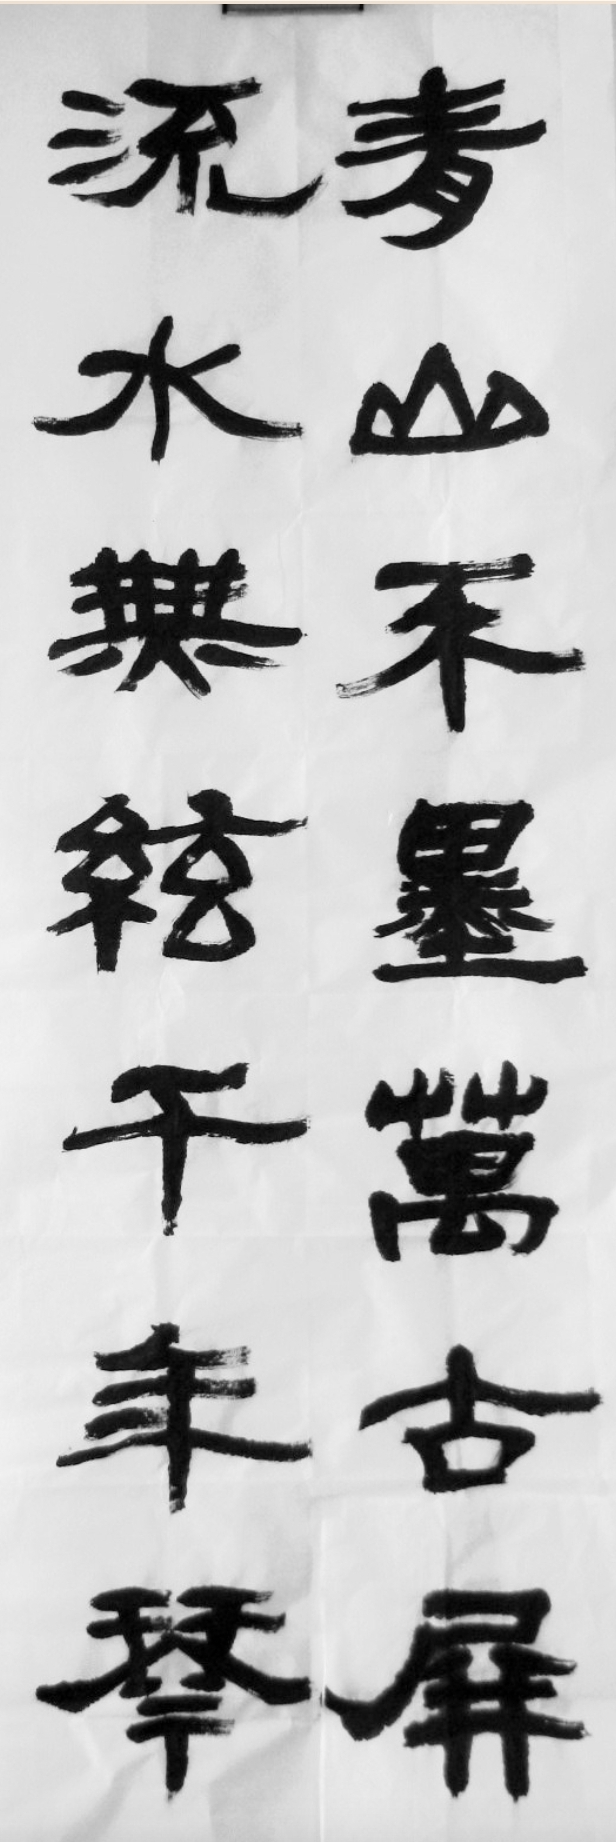 青山不墨萬古屏
流水無絃千年琴